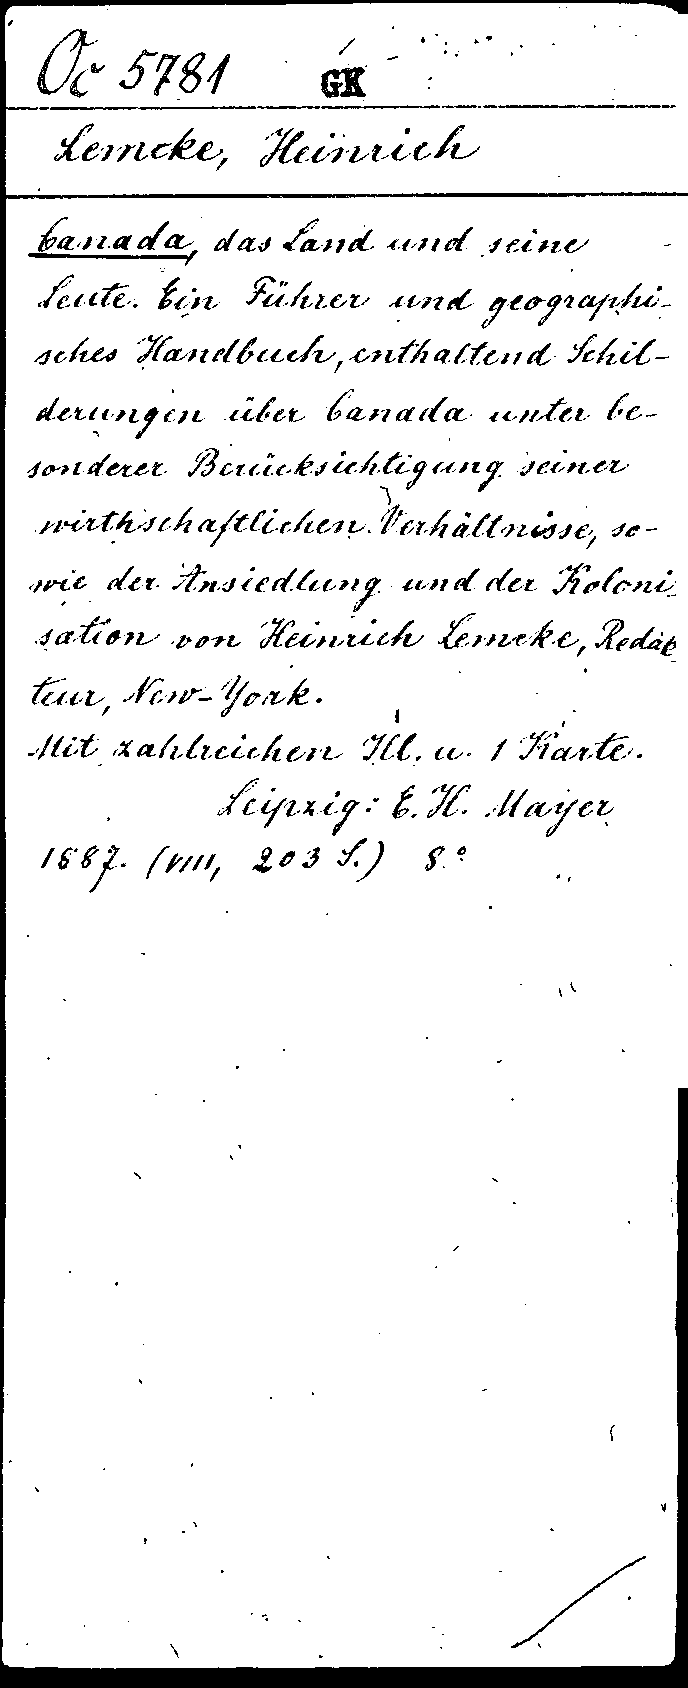 Oc 5781 GK
Lemcke, Heinrich
Canada, das Land und seine
Leute. Ein Führer und geographi-
sches Handbuch, enthaltend Schil-
derungen über Canada unter be-
sonderer Berücksichtigung seiner
wirthschaftlichen Verhältnisse, so-
wie der Ansiedlung und der Koloni-
sation von Heinrich Lemcke, Redak-
teur, New-York.
Mit zahlreichen Ill. u. 1 Karte.
Leipzig: E. H. Mayer
1887. (VIII, 203 S.) 8°